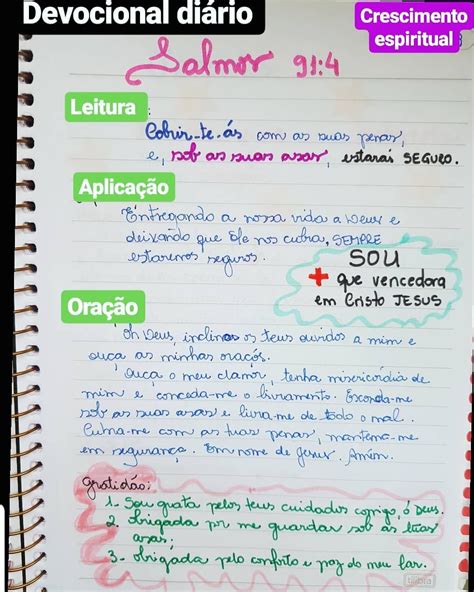 Devocional diário
Crescimento
espiritual
Salmos 91:4
Leitura
Cobrir-te-ás com as suas penas,
e, sob as suas asas, estarás SEGURO.
Aplicação
Entregando a nossa vida a Deus e
deixando que Ele nos cubra, SEMPRE
estaremos seguros.
SOU
+ que vencedora
em Cristo JESUS
Oração
Oh Deus, inclina os teus ouvidos a mim e
ouça as minhas oraçõs.
Ouça o meu clamor, tenha misericórdia de
mim e conceda-me o livramento. Esconda-me
sob as suas asas e livra-me de todo o mal.
Cubra-me com as tuas penas, mantenha-me
em segurança. Em nome de Jesus. Amém.
Gratidão:
1. Sou grata pelos teus cuidados comigo, ó Deus.
2. Obrigada por me guardar sob as tuas
asas;
3- Obrigada pelo conforto e paz do meu lar.
tilibra